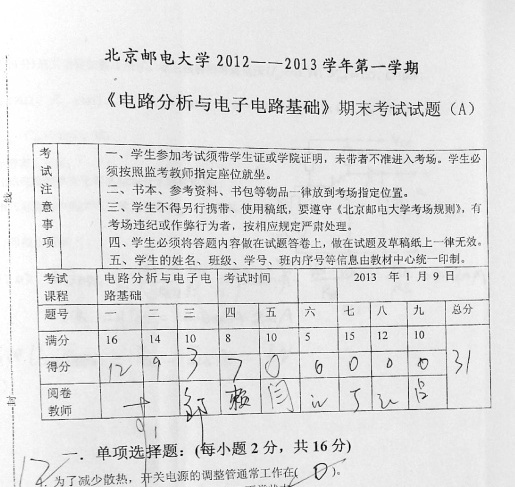 北京邮电大学2012——2013学年第一学期
《电路分析与电子电路基础》期末考试试题（A）
考试注意事项
一、学生参加考试须带学生证或学院证明，未带者不准进入考场。学生必
须按照监考教师指定座位就坐。
二、书本、参考资料、书包等物品一律放到考场指定位置。
三、学生不得另行携带、使用稿纸，要遵守《北京邮电大学考场规则》，有
考场违纪或作弊行为者，按相应规定严肃处理。
四、学生必须将答题内容做在试题答卷上，做在试题及草稿纸上一律无效。
五、学生的姓名、班级、学号、班内序号等信息由教材中心统一印制。
考试课程 电路分析与电子电路基础 考试时间 2013 年 1 月 9 日
题号 一 二 三 四 五 六 七 八 九 总分
满分 16 14 10 8 10 5 15 12 10
得分 12 9 3 7 0 0 0 0 0 31
阅卷教师
一．单项选择题：(每小题 2 分，共 16 分)
12
为了减少散热，开关电源的调整管通常工作在( D )。